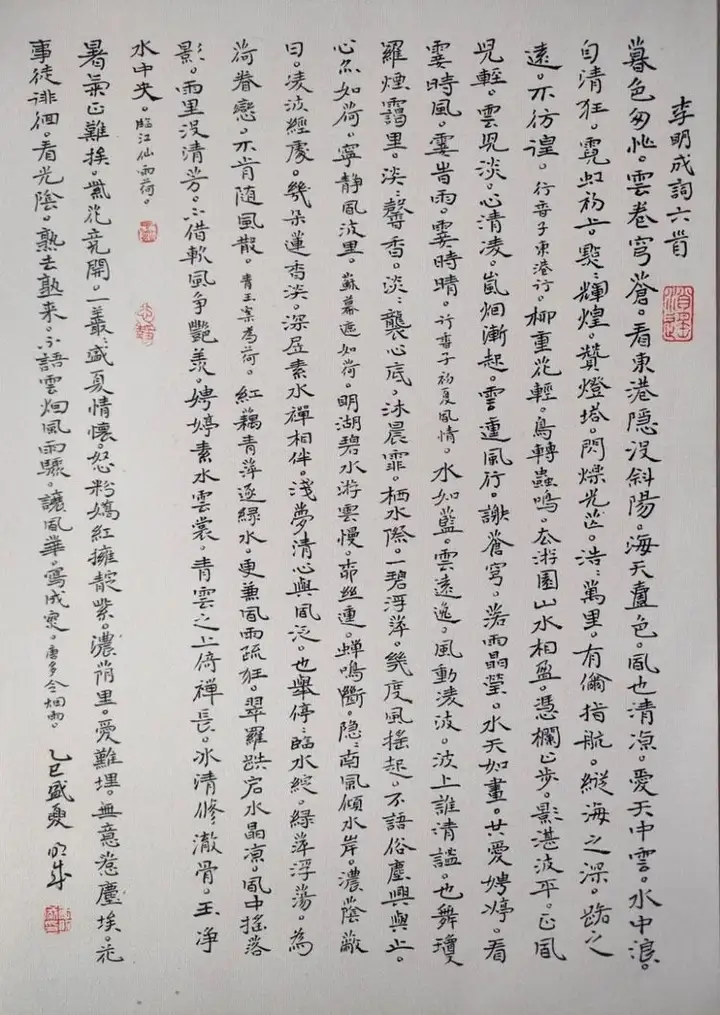 李明成詞六首
暮色匆忙。雲卷穹蒼。看東港隱没斜陽。海天蘆色。風也清涼。愛天中雲。水中浪。
自清狂。霓虹初上。點點輝煌。贊燈塔。閃爍光茫。浩浩萬里。有儞指航。縱海之深。路之
遠。不彷徨。行香子東港行。柳重花輕。鳥轉蟲鳴。在游園山水相盈。憑欄止步。影湛波平。正風
兒輕。雲兒淡。心清凌。嵐烟漸起。雲重風行。謝蒼穹。落雨晶瑩。水天如畫。共愛娉婷。看
霎時風。霎時雨。霎時晴。行香子初夏風情。水如藍。雲遠逸。風動凌波。波上誰清謐。也舞瓊
羅煙靄里。淡淡馨香。淡淡襲心底。沐晨霏。栖水際。一碧浮萍。幾度風摇起。不語俗塵興與止。
心尒如荷。寧静風波里。蘇幕遮如荷。明湖碧水游雲慢。藕絲連。蟬鳴斷。隐隐南風傾水岸。濃蔭蔽
日。凌波經處。幾朵蓮香淡。深居素水禪相伴。淺夢清心與風泛。也舉停停臨水綻。緑萍浮蕩。為
荷眷戀。不肯随風散。青玉案為荷。紅藕青萍逐緑水。更兼風雨疏狂。翠羅跌宕水晶凉。風中摇落
影。雨里没清芳。不借軟風争艷羨。娉婷素水雲裳。青雲之上倚禪長。冰清修澈骨。玉净
水中央。臨江仙雨荷。
暑氣正難挨。紫花竞開。一叢叢盛夏情懷。怒粉嬌紅擁靛紫。濃蔭里。愛難埋。無意惹塵埃。花
事徒徘徊。看光陰。熟去熟来。不語雲烟風雨驟。讓風華。寫成哀。唐多令烟雨。 乙巳盛夏 明成